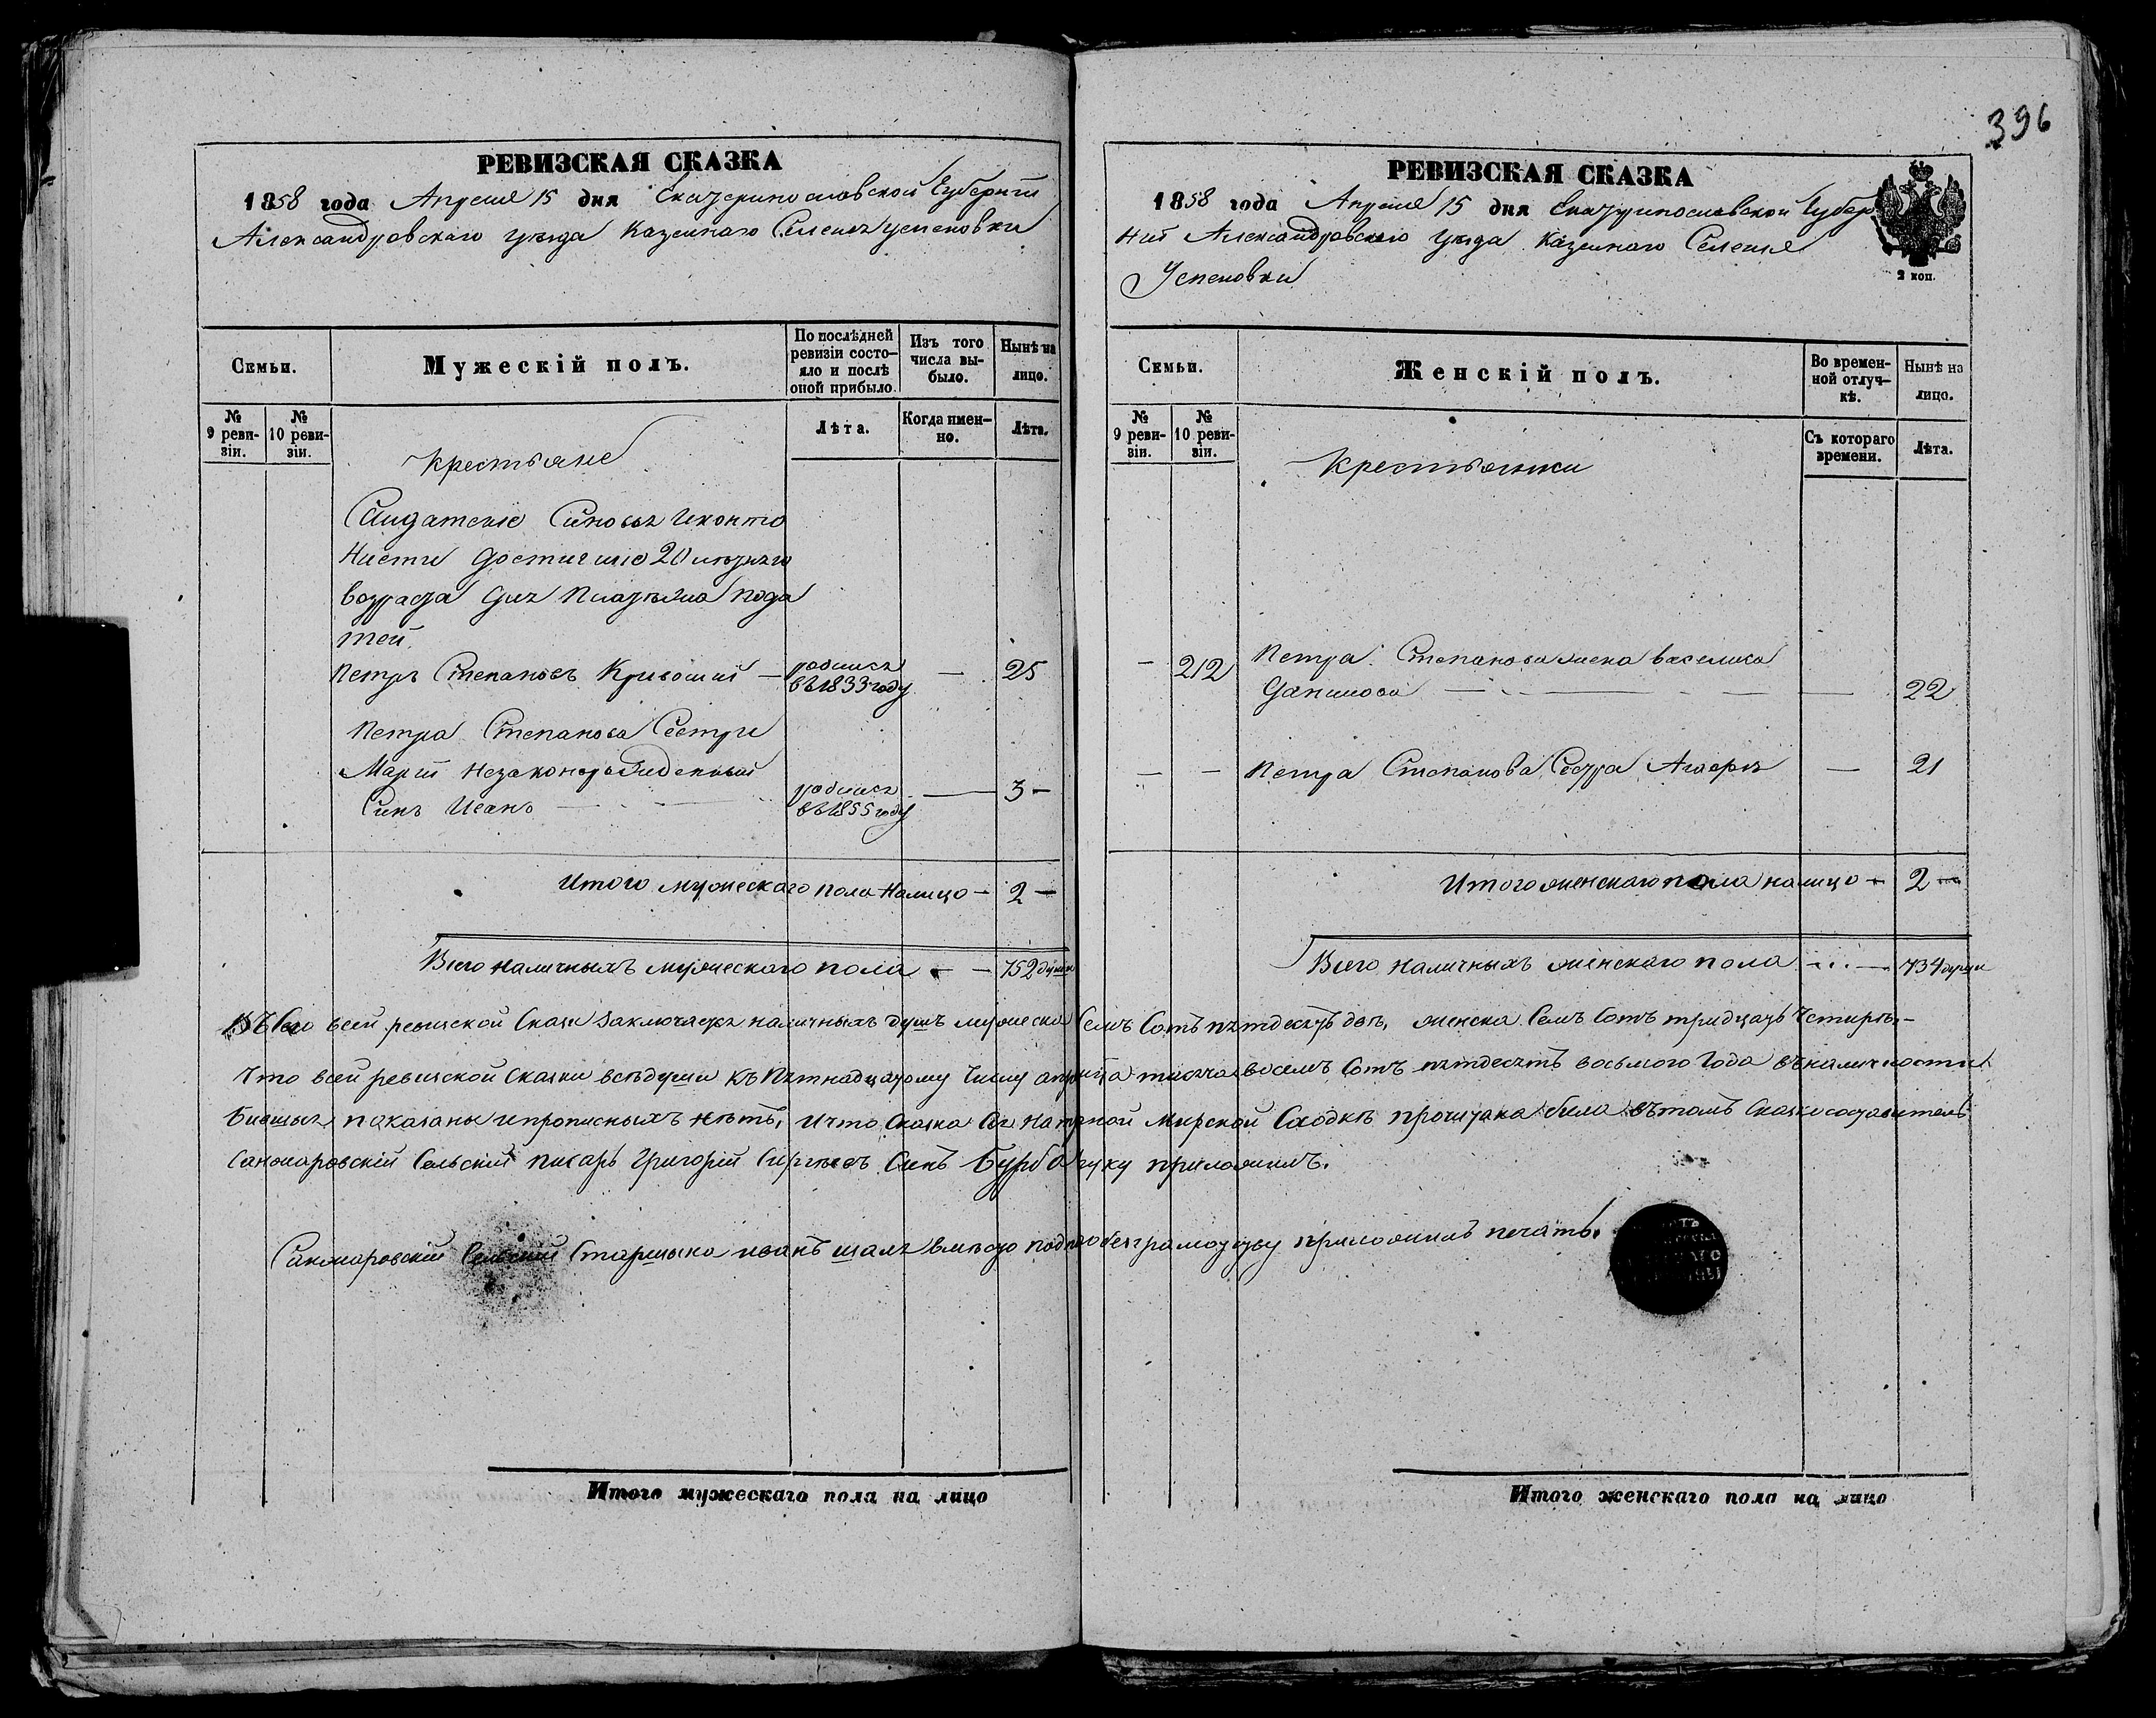 396
РЕВИЗСКАЯ СКАЗКА
1858 года Апреля 15 дня Екатеринославской Губернии
Александровскаго уезда Казеннаго Селенія Успеновки
Семьи.
Мужескій полъ.
По послѣдней ревизіи состо-
яло и послѣ оной прибыло.
Изъ того числа вы-
было.
Нынѣ на лицо.
№ 9 реви-
зіи.
№ 10 реви-
зіи.
Лѣта.
Когда имен-
но.
Лѣта.
Крестьяне
Солдатские Синовья Иконто
Нисти достигшие 20 летняго
возраста для Платежа пода
тей.
Петръ Степановъ Кривоший — родился въ 1833 году — 25
Петра Степанова Сестри
Марии Незаконорожденный
Синъ Иванъ — родился въ 1855 году — 3 —
Итого мужескаго пола Налицо — 2 —
Всего наличныхъ мужескаго пола — — 752 души
РЕВИЗСКАЯ СКАЗКА
1858 года Апреля 15 дня Екатеринославской Губер
нии Александровскаго Уезда Казеннаго Селенія
Успеновки
2 коп.
Семьи.
Женскій полъ.
Во времен-
ной отлуч-
кѣ.
Нынѣ на лицо.
№ 9 реви-
зіи.
№ 10 реви-
зіи.
Съ котораго времени.
Лѣта.
Крестьянки
— 212 Петра Степанова жена Василиса
Данилова — — 22
— — Петра Степанова Сестра — 21
Итого женскаго пола налицо — 2 —
Всего наличныхъ женскаго пола — 734 души
всей ревизской Сказки заключается наличныхъ душъ мужеска Семъ Сотъ пятдесятъ две, женска Семъ Сотъ тридцать Четире,—
Что всей ревизской Сказки всѣ души къ Пятнадцатому Числу апреля тисяча восемъ Сотъ пятдесятъ восьмого Года въ наличности
показаны и прописныхъ нѣтъ, и что Сказка Мирской Сходкѣ прочитана била въ томъ Сказкосоставитель
Санжаровскій Сельский писарь Григорій Сергѣевъ Синъ руку приложилъ.
Санжаровскій Сельский Старшина иванъ вместо подписи безграмотству приложилъ печать.
Итого мужескаго пола на лицо
Итого женскаго пола на лицо